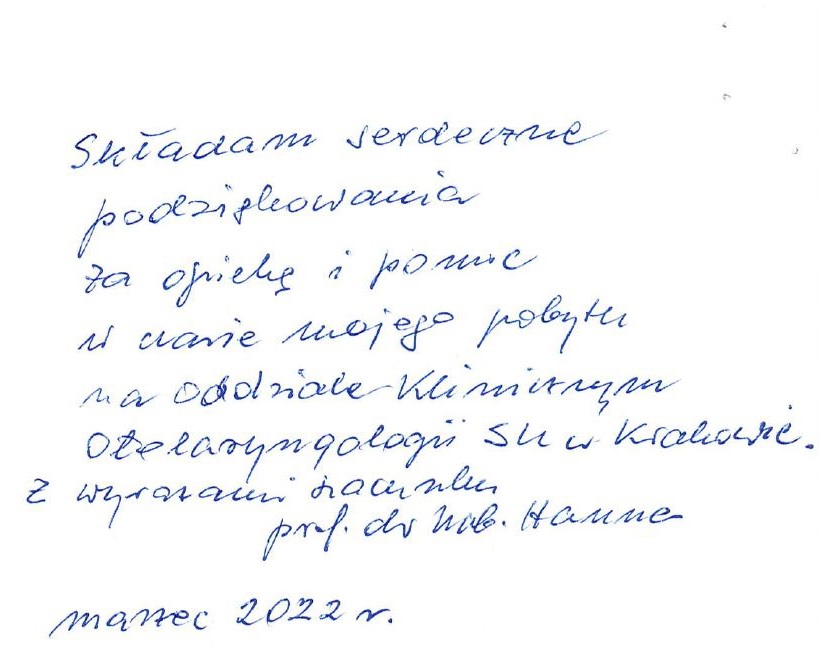 Składam serdeczne
podziękowania
za opiekę i pomoc
w czasie mojego pobytu
na Oddziale Klinicznym
Otolaryngologii SU w Krakowie.
Z wyrazami szacunku
prof. dr hab. Hanna
marzec 2022 r.